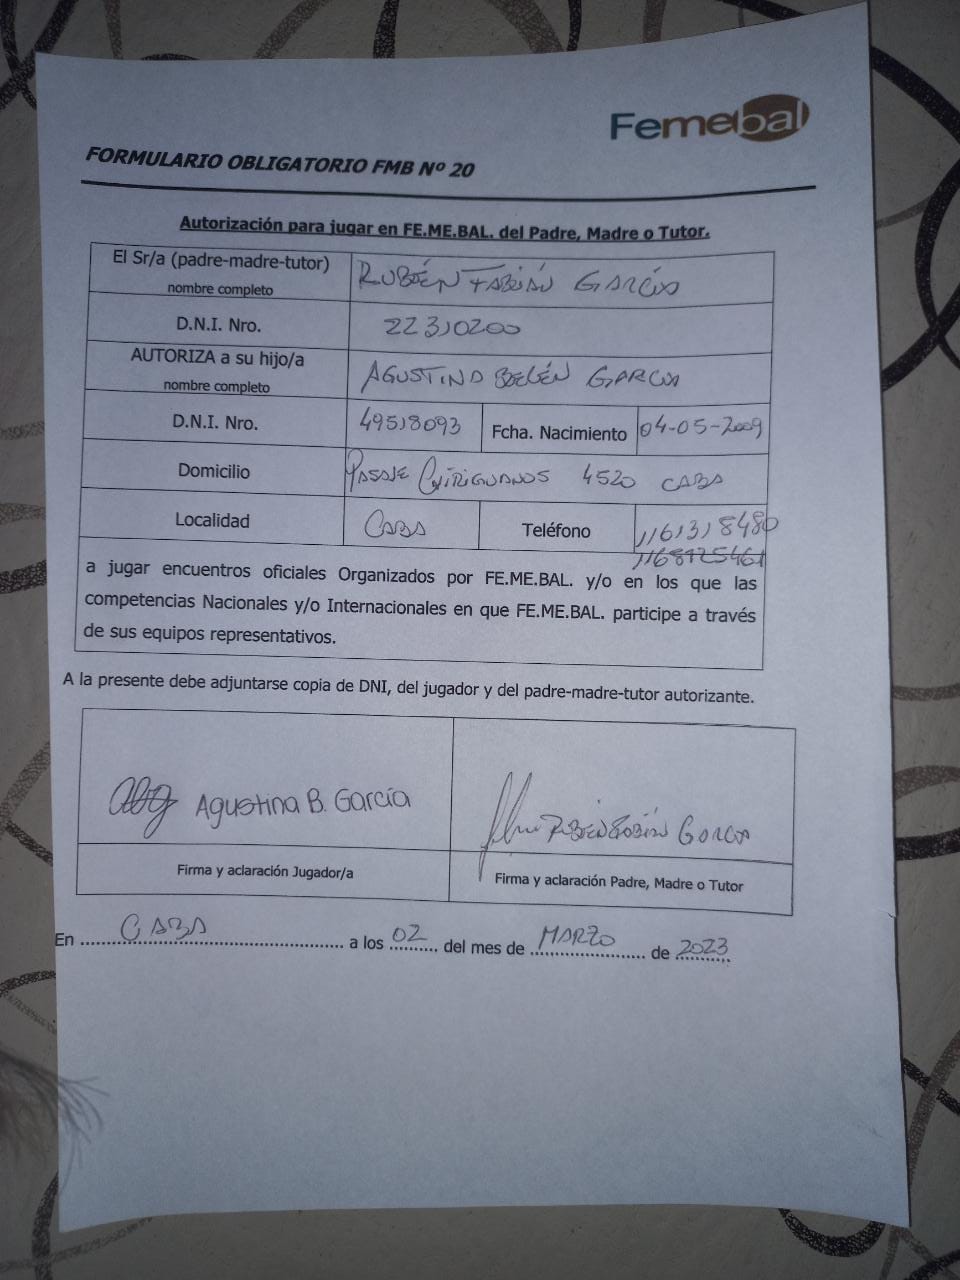 Femebal
FORMULARIO OBLIGATORIO FMB Nº 20
Autorización para jugar en FE.ME.BAL. del Padre, Madre o Tutor.
El Sr/a (padre-madre-tutor)
nombre completo
RUBÉN FABIÁN GARCÍA
D.N.I. Nro.
22310200
AUTORIZA a su hijo/a
nombre completo
AGUSTINA BELÉN GARCIA
D.N.I. Nro.
49518093
Fcha. Nacimiento
04-05-2009
Domicilio
PASAJE CHIRIGUANOS 4520 CABA
Localidad
CABA
Teléfono
1161318480
1168725461
a jugar encuentros oficiales Organizados por FE.ME.BAL. y/o en los que las
competencias Nacionales y/o Internacionales en que FE.ME.BAL. participe a través
de sus equipos representativos.
A la presente debe adjuntarse copia de DNI, del jugador y del padre-madre-tutor autorizante.
Agustina B. García
RUBÉN FABIÁN GARCIA
Firma y aclaración Jugador/a
Firma y aclaración Padre, Madre o Tutor
En CABA a los 02 del mes de MARZO de 2023